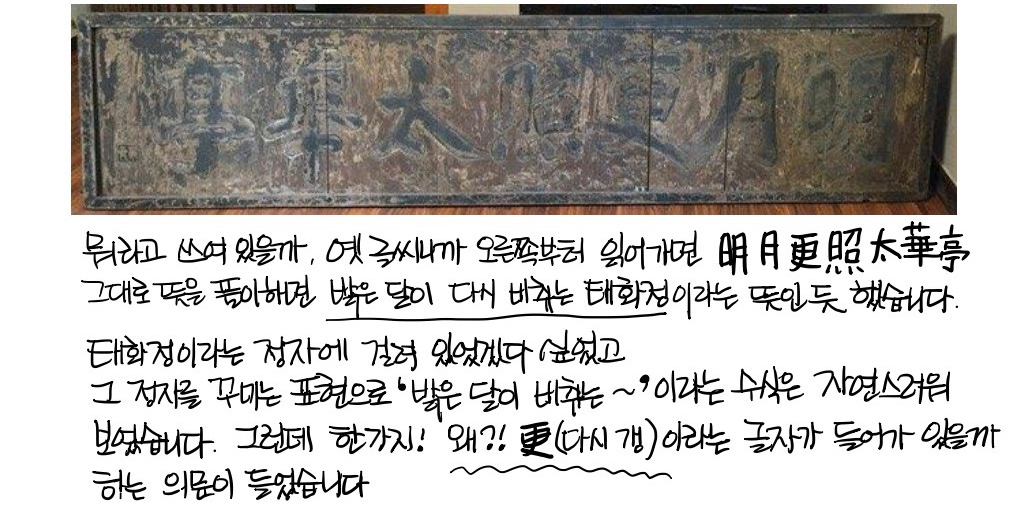 明月更照太華亭
뭐라고 쓰여 있을까, 옛 글씨니까 오른쪽부터 읽어가면 明月更照太華亭
그대로 뜻을 풀이하면 밝은 달이 다시 비추는 태화정이라는 뜻인 듯 했습니다.
태화정이라는 정자에 걸려 있었겠다 싶었고
그 정자를 꾸미는 표현으로 '밝은 달이 비추는 ~' 이라는 수식은 자연스러워
보였습니다. 그런데 한가지! 왜?! 更(다시 갱)이라는 글자가 들어가 있을까
하는 의문이 들었습니다